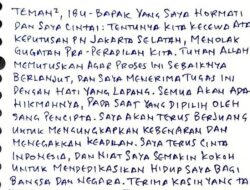 TEMAN², IBU-BAPAK YANG SAYA HORMATI
DAN SAYA CINTAI. TENTUNYA KITA KECEWA ATAS
KEPUTUSAN PN JAKARTA SELATAN, MENOLAK
GUGATAN PRA-PERADILAN KITA. TUHAN ALLAH
MEMUTUSKAN AGAR PROSES INI SEBAIKNYA
BERLANJUT, DAN SAYA MENERIMA TUGAS INI
DENGAN HATI YANG LAPANG. SEMUA AKAN ADA
HIKMAHNYA, PADA SAAT YANG DIPILIH OLEH
SANG PENCIPTA. SAYA AKAN TERUS BERJUANG
UNTUK MENGUNGKAPKAN KEBENARAN DAN
MENEGAKKAN KEADILAN. SAYA TERUS CINTA
INDONESIA, DAN NIAT SAYA SEMAKIN KOKOH
UNTUK MENDEDIKASIKAN HIDUP SAYA BAGI
BANGSA DAN NEGARA. TERIMA KASIH YANG